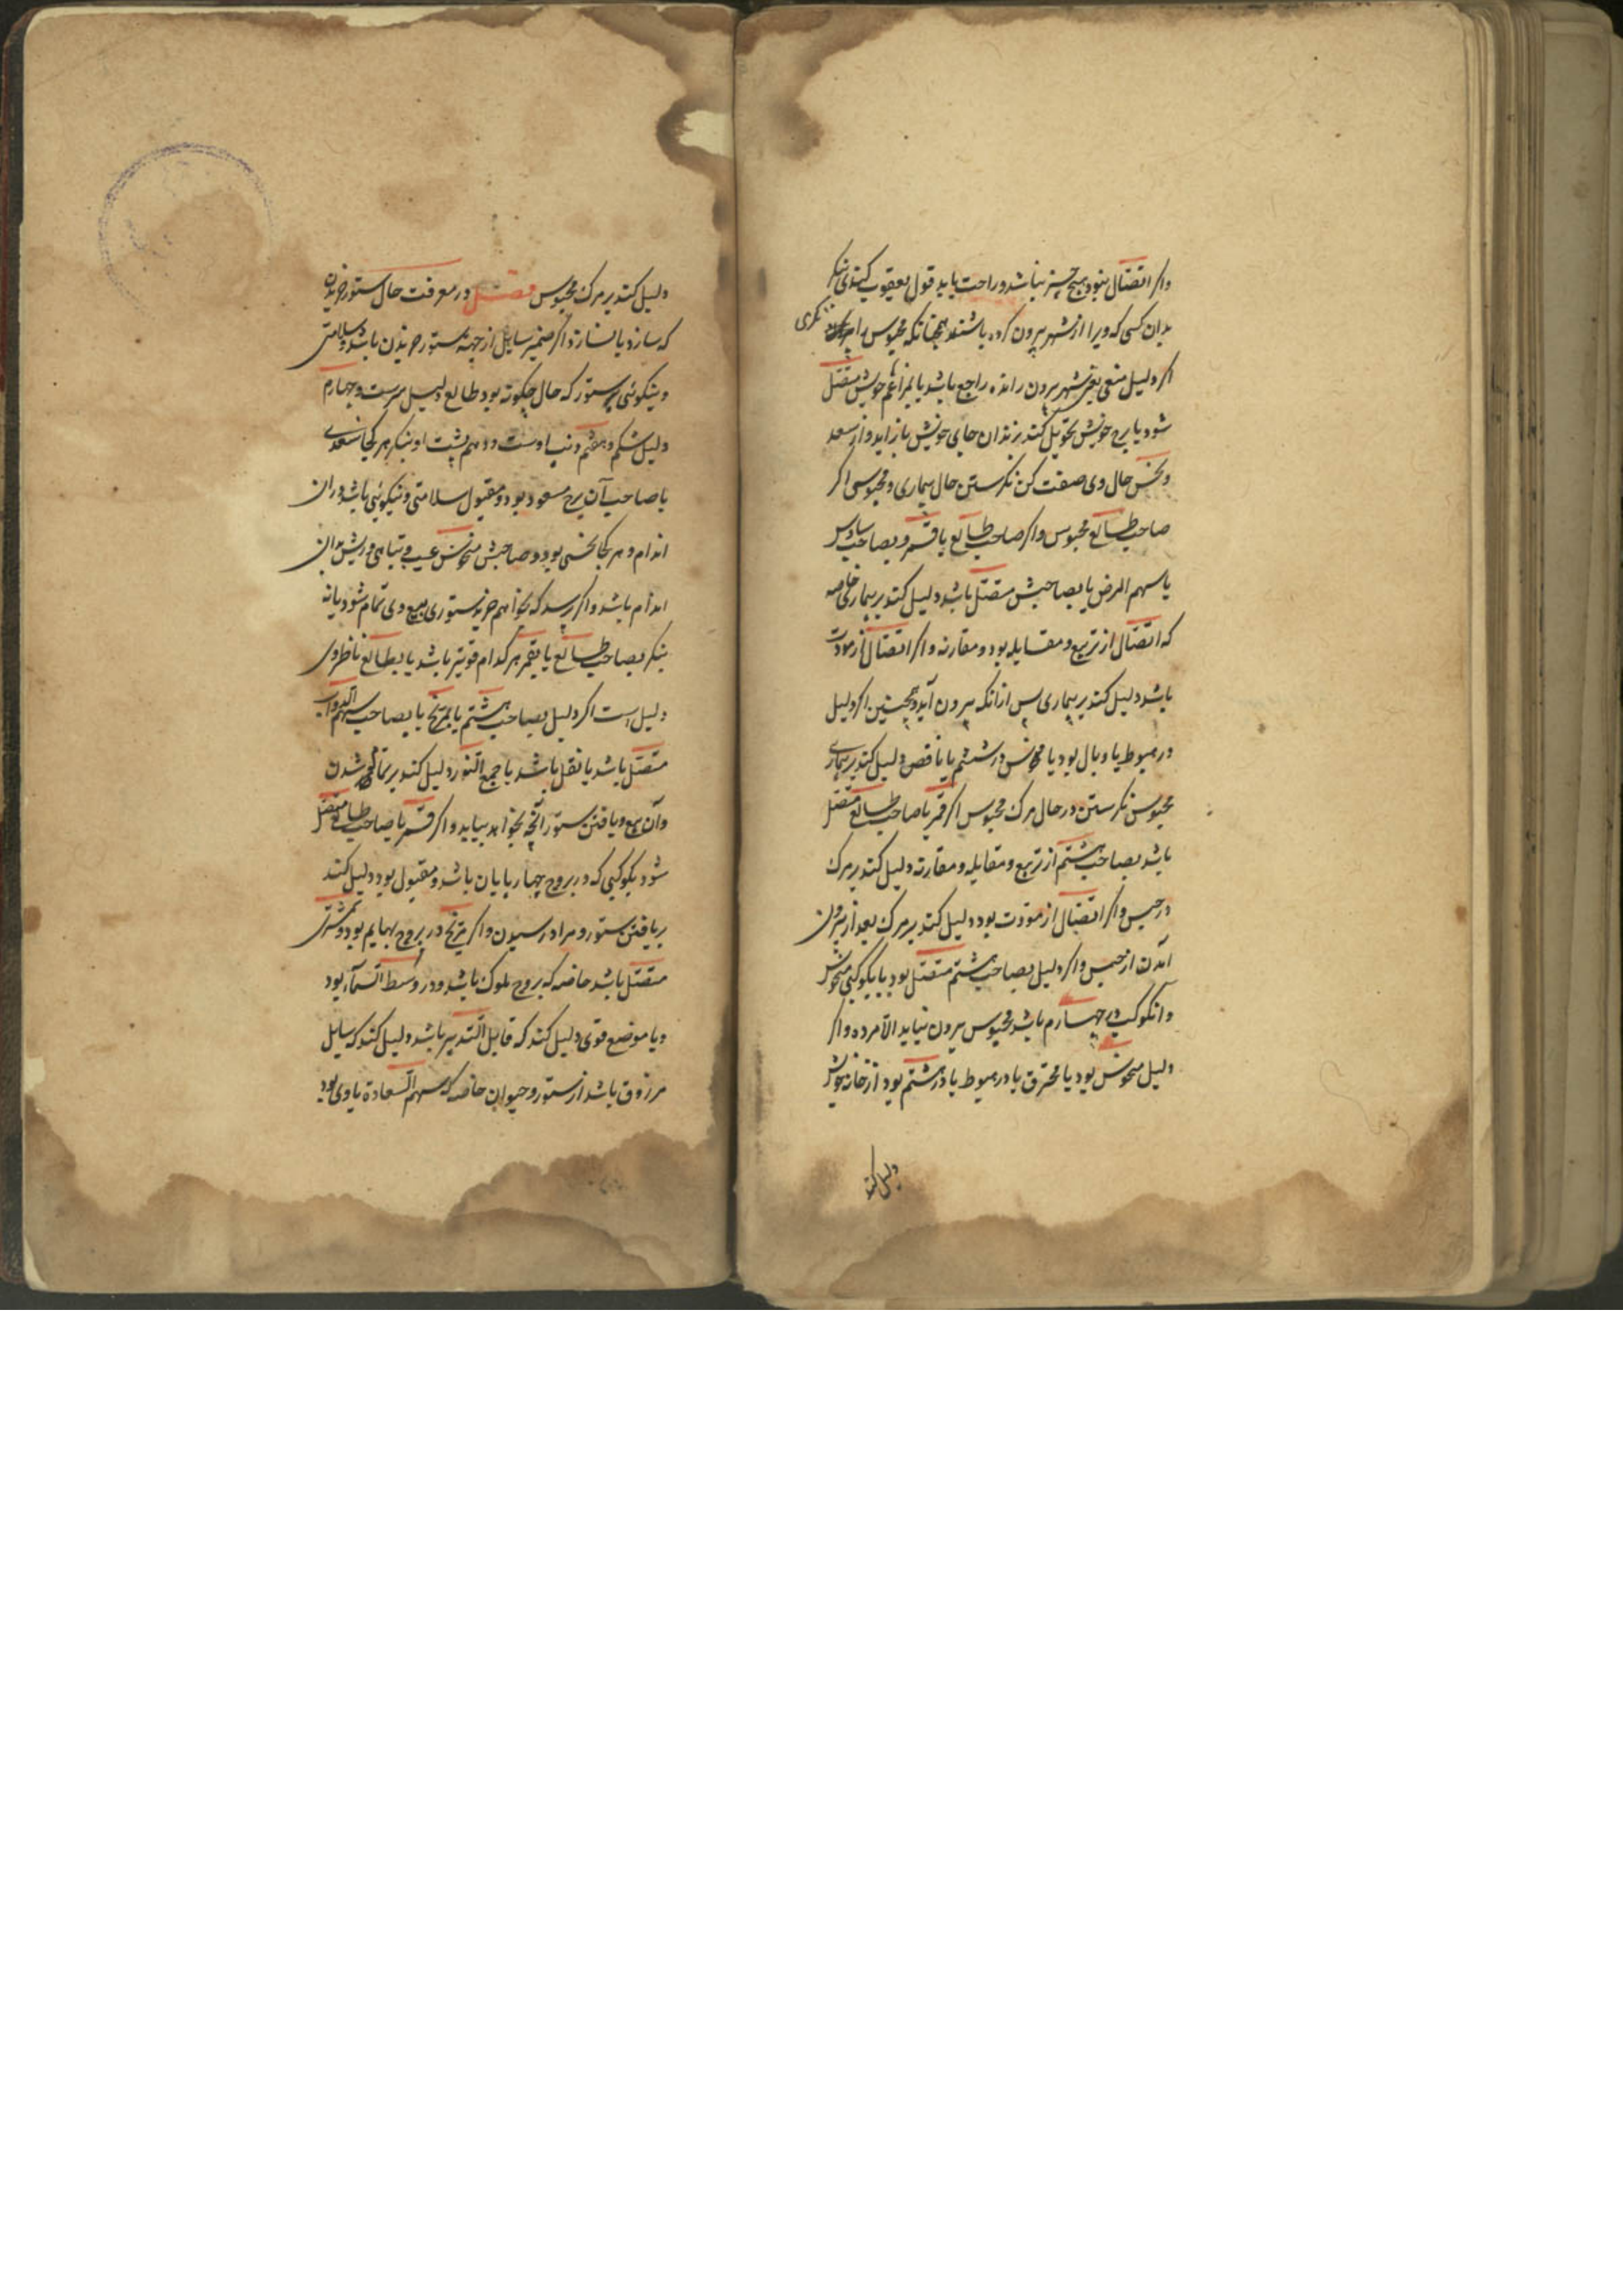 واکر اتصال نبود هیچ چیز نباشد و راحت یابد قول یعقوب کندی بنکر
بدان کسی که ویرا از شهر بیرون کرده باشند همچنانکه محبوس را می نکری
اکر دلیل منعی یعنی شهر بیرون رانده راجع باشد یا بمزاعم خویش متصل
شود یا برج خویش تحویل کند بزندان جای خویش باز اید و از سعد
و نحس حال وی صفت کن نکرستن حال بیماری محبوس اکر
صاحب طالع محبوس واکر صاحب طالع یا قمر و بصاحب سادس
یا سهم المرض یا بصاحبش متصل باشد دلیل کند بر بیماری خاصه
که اتصال از تربیع و مقابله بود و مقارنه واکر اتصال از مودت
باشد دلیل کند بر بیماری پس ازانکه بیرون آید و همچنین اکر دلیل
در هبوط یا وبال بود یا منحوس در ششم یا ناقص دلیل کند بر بیماری
محبوس نکرستن در حال مرک محبوس اکر قمر یا صاحب طالع متصل
باشد بصاحب هشتم از تربیع و مقابله و مقارنه دلیل کند بر مرک
در حبس واکر اتصال از مودت بود دلیل کند بر مرک بعد از بیرون
آمدن از حبس واکر دلیل بصاحب هشتم متصل بود یا بکوکبی منحوس
و انکوکب در چهارم باشد محبوس بیرون نیاید الا مرده واکر
دلیل منحوس بود یا محترق یا در هبوط یا در هشتم بود از خانه خویش
دلیل کند
دلیل کند بر مرک محبوس فصل در معرفت حال ستور خریدن
که سازد یا نسازد اکر ضمیر سایل از جهة ستور خریدن باشد و سلامتی
و نیکوئی ستور که حال چکونه بود طالع دلیل سرست و چهارم
دلیل شکم و هفتم دنب اوست و دهم پشت او بنکر هر کجا سعدی
یا صاحب آن برج مسعود بود و مقبول سلامتی و نیکوئی باشد دران
اندام و هر کجا نحسی بود و صاحبش منحوس عیب و تباهی و ریش بدان
اندام باشد واکر پرسد که بخواهم خرید ستوری بیع وی تمام شود یا نه
بنکر بصاحب طالع یا بقمر هر کدام قویتر باشد یا بطالع ناظر وی
دلیل است اکر دلیل بصاحب هشتم یا بمریخ یا بصاحب سهم الدواب
متصل باشد یا نقل باشد یا جمع النور دلیل کند بر تمام شدن
وآن بیع و یافتن ستور آنچه بخواهد بیابد واکر قمر یا صاحب طالع متصل
شود بکوکبی که در بروج چهارپایان باشد و مقبول بود دلیل کند
بر یافتن ستور و مراد رسیدن واکر مریخ در بروج بهایم بود و بمشتری
متصل باشد خاصه که بروج ملوک باشد و در وسط السمآء بود
و یا موضع قوی دلیل کند که قابل التدبیر باشد دلیل کند که سایل
مرزوق باشد از ستور و حیوان خاصه که سهم السعادة با وی بود